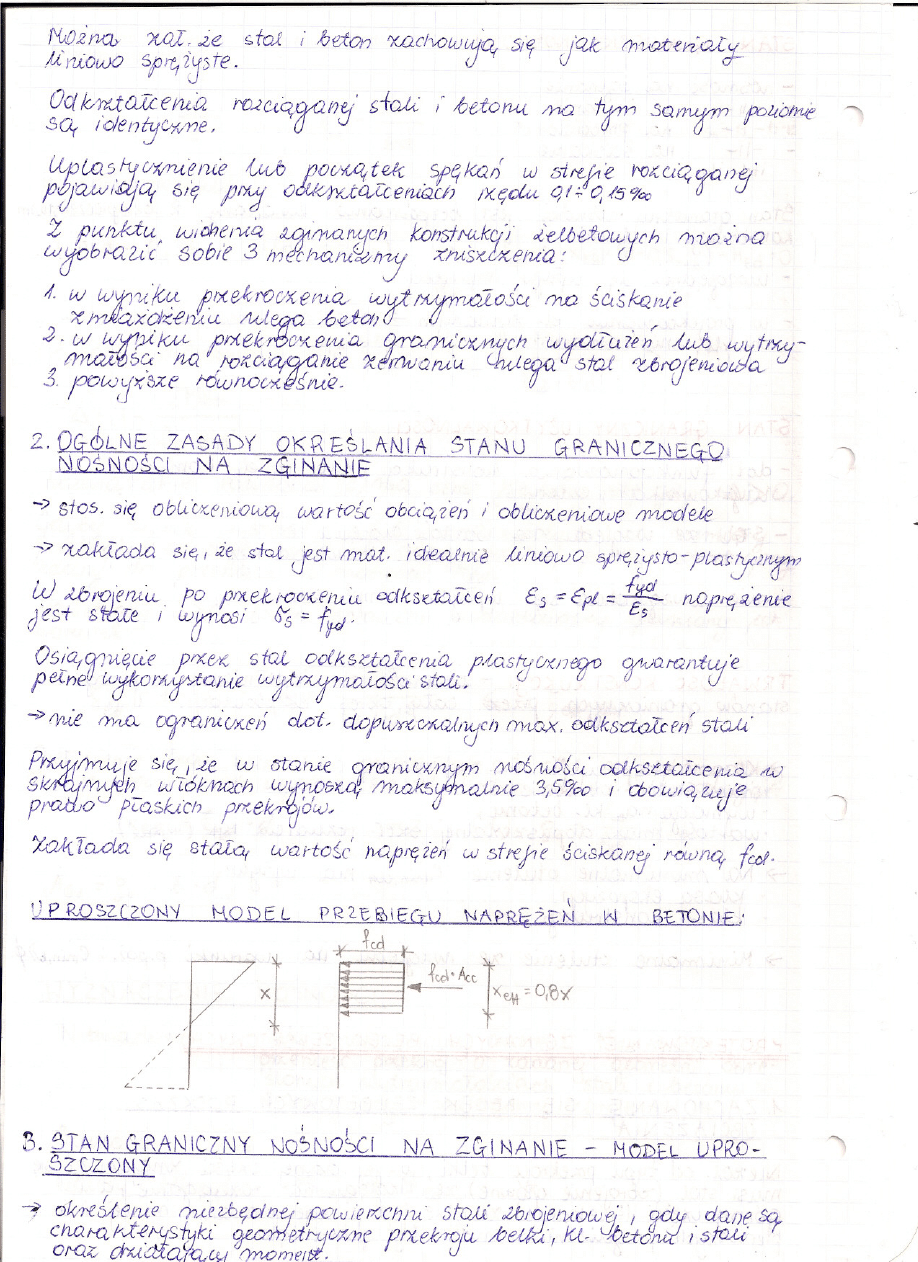 Można zał. że stal i beton zachowują się jak materiały
liniowo sprężyste.
Odkształcenia rozciąganej stali i betonu na tym samym poziomie
są identyczne.
Uplastycznienie lub początek spękań w strefie rozciąganej
pojawiają się przy odkształceniach rzędu 0,1÷0,15‰
Z punktu widzenia zginanych konstrukcji żelbetowych można
wyobrazić sobie 3 mechanizmy zniszczenia:
1. w wyniku przekroczenia wytrzymałości na ściskanie
zmiażdżeniu ulega beton
2. w wyniku przekroczenia granicznych wydłużeń lub wytrzy-
małości na rozciąganie zerwaniu ulega stal zbrojeniowa
3. powyższe równocześnie.
2. OGÓLNE ZASADY OKREŚLANIA STANU GRANICZNEGO
NOŚNOŚCI NA ZGINANIE
→ stos. się obliczeniową wartość obciążeń i obliczeniowe modele
→ zakłada się, że stal jest mat. idealnie liniowo sprężysto-plastycznym
W zbrojeniu po przekroczeniu odkształceń εs = εpl = fyd/Es naprężenie
jest stałe i wynosi σs = fyd.
Osiągnięcie przez stal odkształcenia plastycznego gwarantuje
pełne wykorzystanie wytrzymałości stali.
→ nie ma ograniczeń dot. dopuszczalnych max. odkształceń stali
Przyjmuje się, że w stanie granicznym nośności odkształcenia w
skrajnych włóknach wynoszą maksymalnie 3,5‰ i obowiązuje
prawo płaskich przekrojów.
Zakłada się stałą wartość naprężeń w strefie ściskanej równą fcd.
UPROSZCZONY MODEL PRZEBIEGU NAPRĘŻEŃ W BETONIE:
fcd
x
fcd·Acc
xeff=0,8x
3. STAN GRANICZNY NOŚNOŚCI NA ZGINANIE – MODEL UPRO-
SZCZONY
→ określenie niezbędnej powierzchni stali zbrojeniowej, gdy dane są
charakterystyki geometryczne przekroju belki, kl. betonu i stali
oraz działający moment.